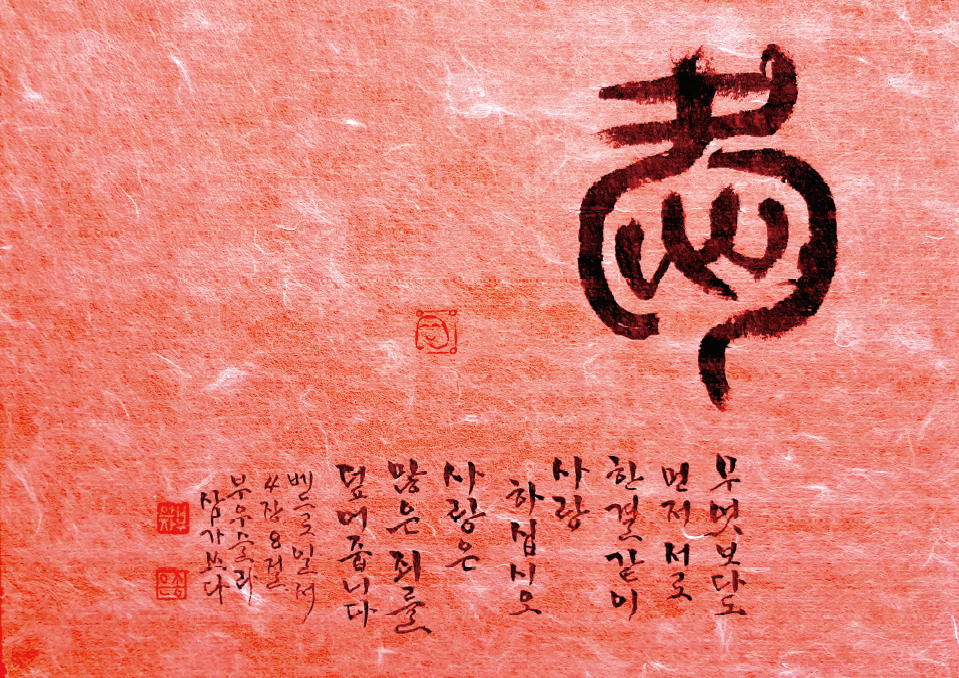 愛
무엇보다도
먼저 서로
한결같이
사랑
하십시오
사랑은
많은 죄를
덮어줍니다
베드로일서
4장 8절
부우술라
삼가쓰다